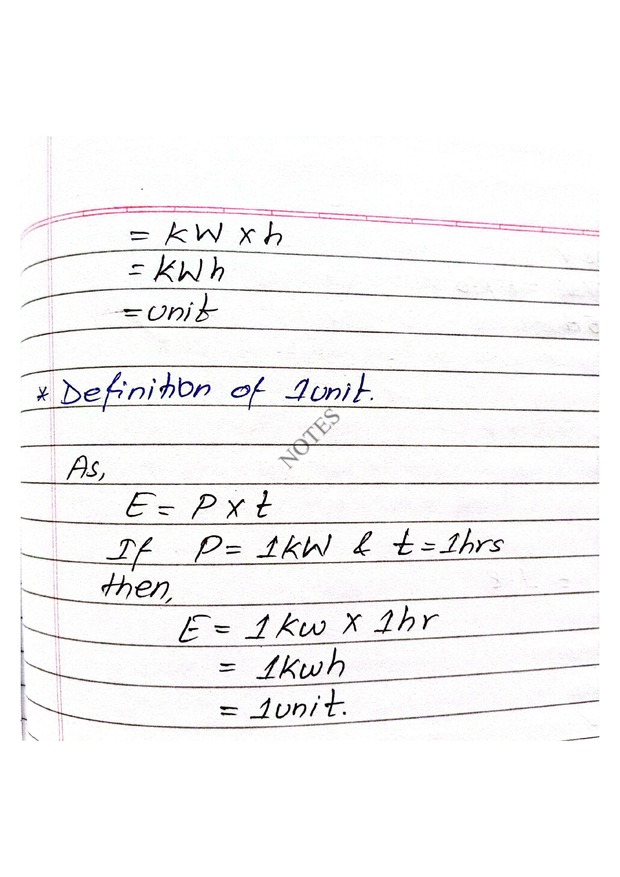 = kW x h
= kWh
= unit
* Definition of 1unit.
NOTES
As,
E = P x t
If P = 1kW & t = 1hrs
then,
E = 1kw x 1hr
= 1kwh
= 1unit.